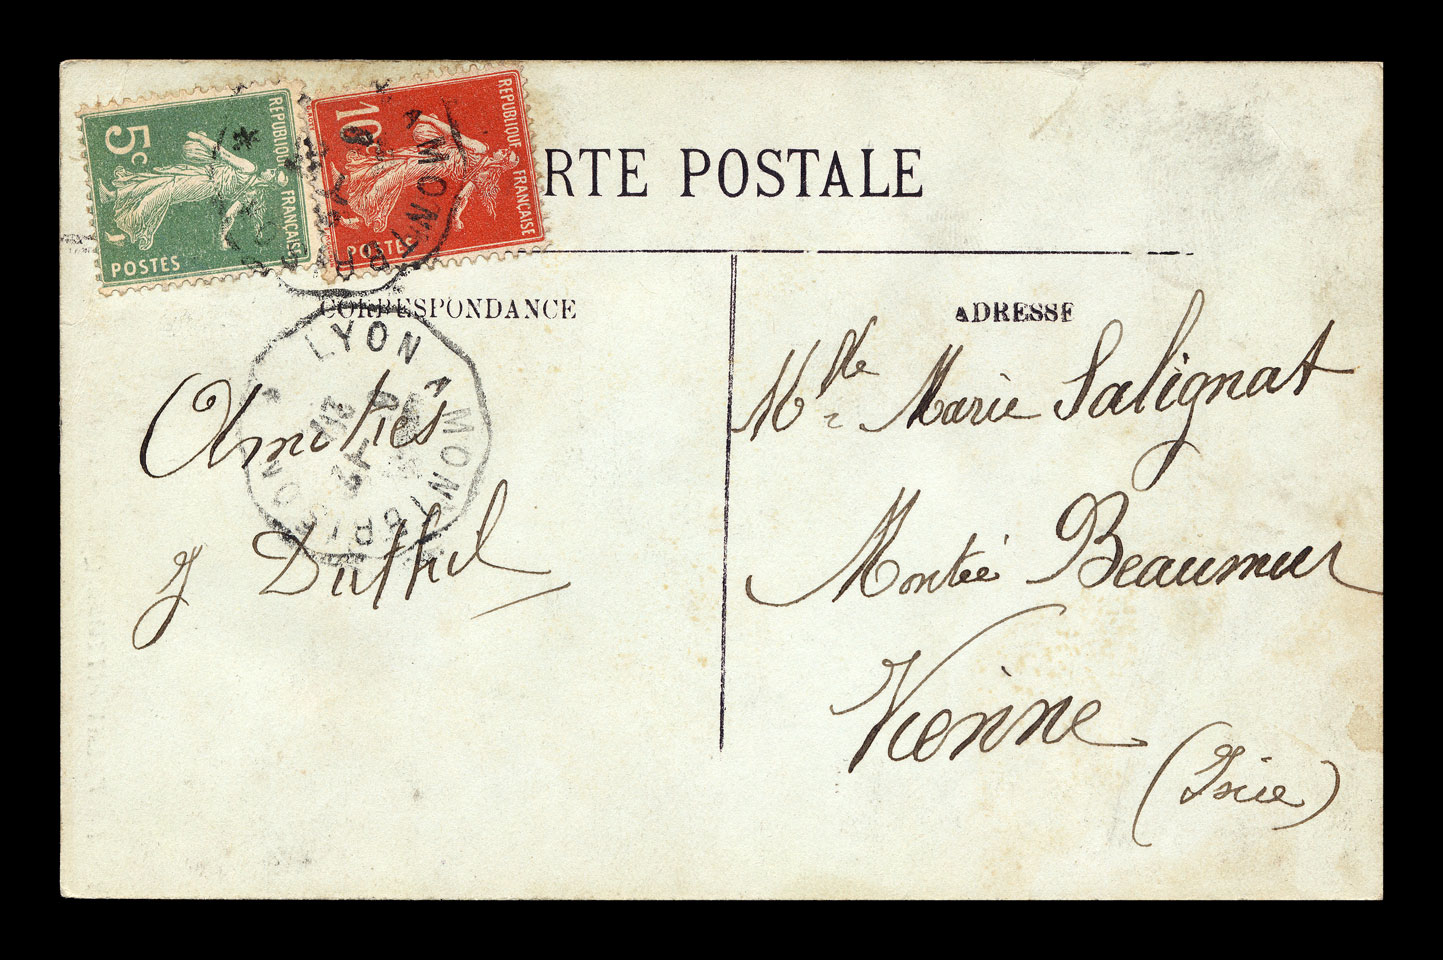 5c
REPUBLIQUE FRANÇAISE
POSTES
10c
REPUBLIQUE FRANÇAISE
POSTES
A MONTBR
RTE POSTALE
CORRESPONDANCE
ADRESSE
LYON A MONTBRISON
Amitiés
J Duthel
Mlle Marie Salignat
Montée Beaumur
Vienne
(Isère)